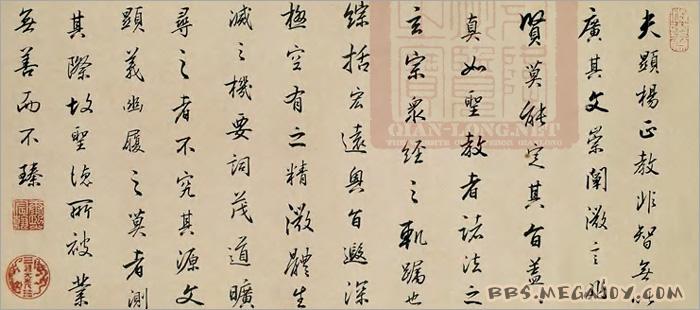 夫顯楊正教非智無以
廣其文崇闡微言非
賢莫能定其旨蓋
真如聖教者諸法之
玄宗衆經之軌躅也
綜括宏遠奧旨遐深
極空有之精微體生
滅之機要詞茂道曠
尋之者不究其源文
顯義幽履之莫者測
其際故聖慈所被業
無善而不臻
QIAN-LONG.NET
BBS.MEGAJOY.COM